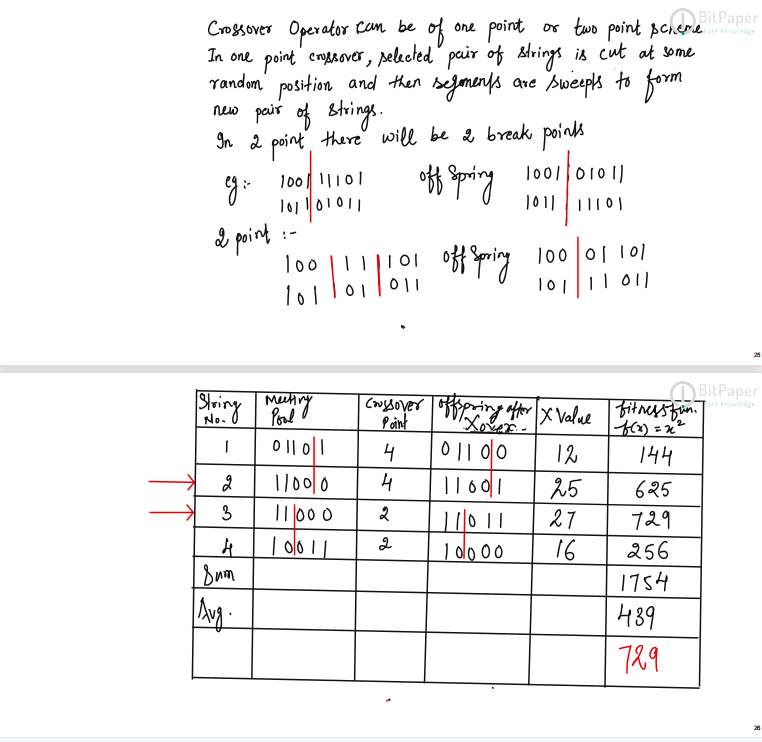 BitPaper
Share Knowledge
Crossover Operator can be of one point or two point scheme
In one point crossover, selected pair of strings is cut at some
random position and then segments are sweepts to form
new pair of strings.
In 2 point there will be 2 break points
eg:- 1001 11101 off spring 1001 01011
1011 01011 1011 11101
2 point :-
100 111 101 off spring 100 01 101
101 01 011 101 11 011
25
BitPaper
Share Knowledge
String No. Meeting Pool Crossover Point offspring after Xover. X Value fitness fun. f(x) = x²
1 01101 4 01100 12 144
2 11000 4 11001 25 625
3 11000 2 11011 27 729
4 10011 2 10000 16 256
Sum 1754
Avg. 439
729
26